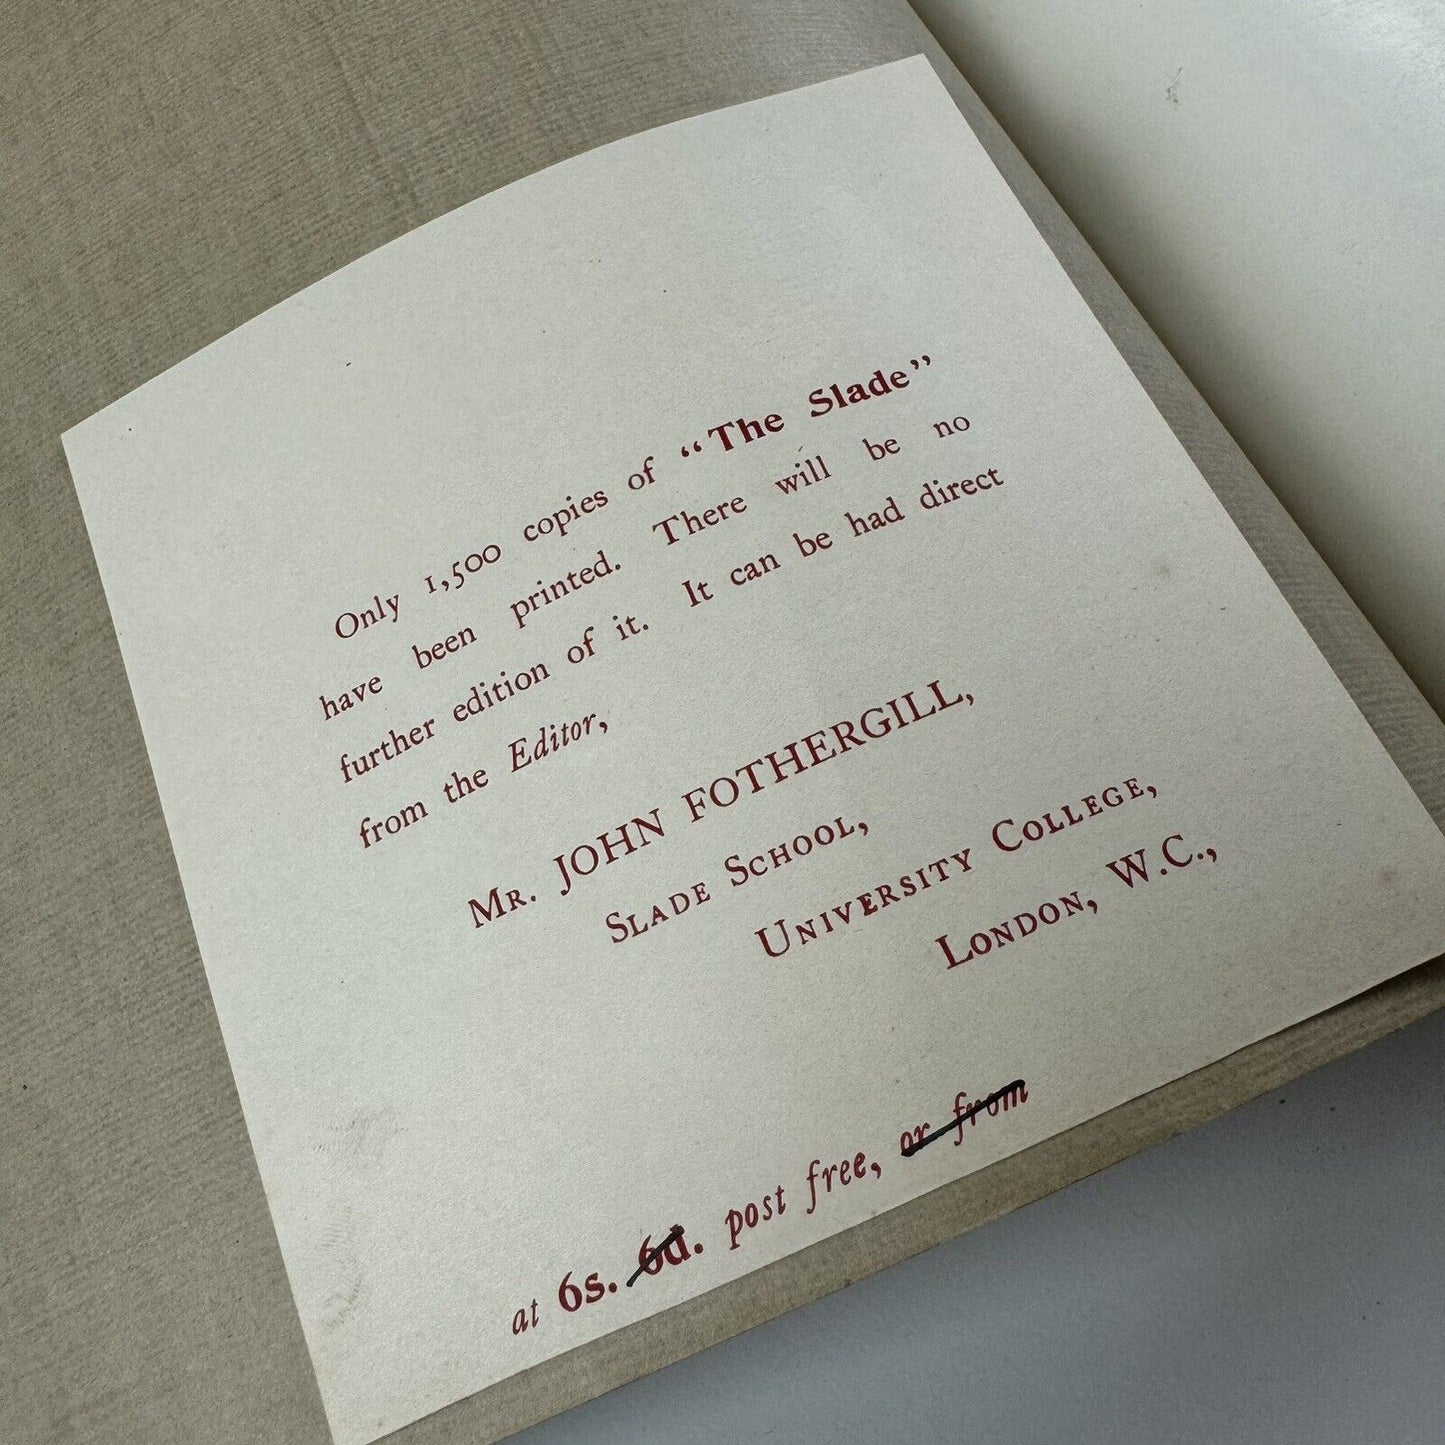 Only 1,500 copies of “The Slade”
have been printed. There will be no
further edition of it. It can be had direct
from the Editor,
Mr. JOHN FOTHERGILL,
Slade School,
University College,
London, W.C.,
at 6s. 6d. post free, or from